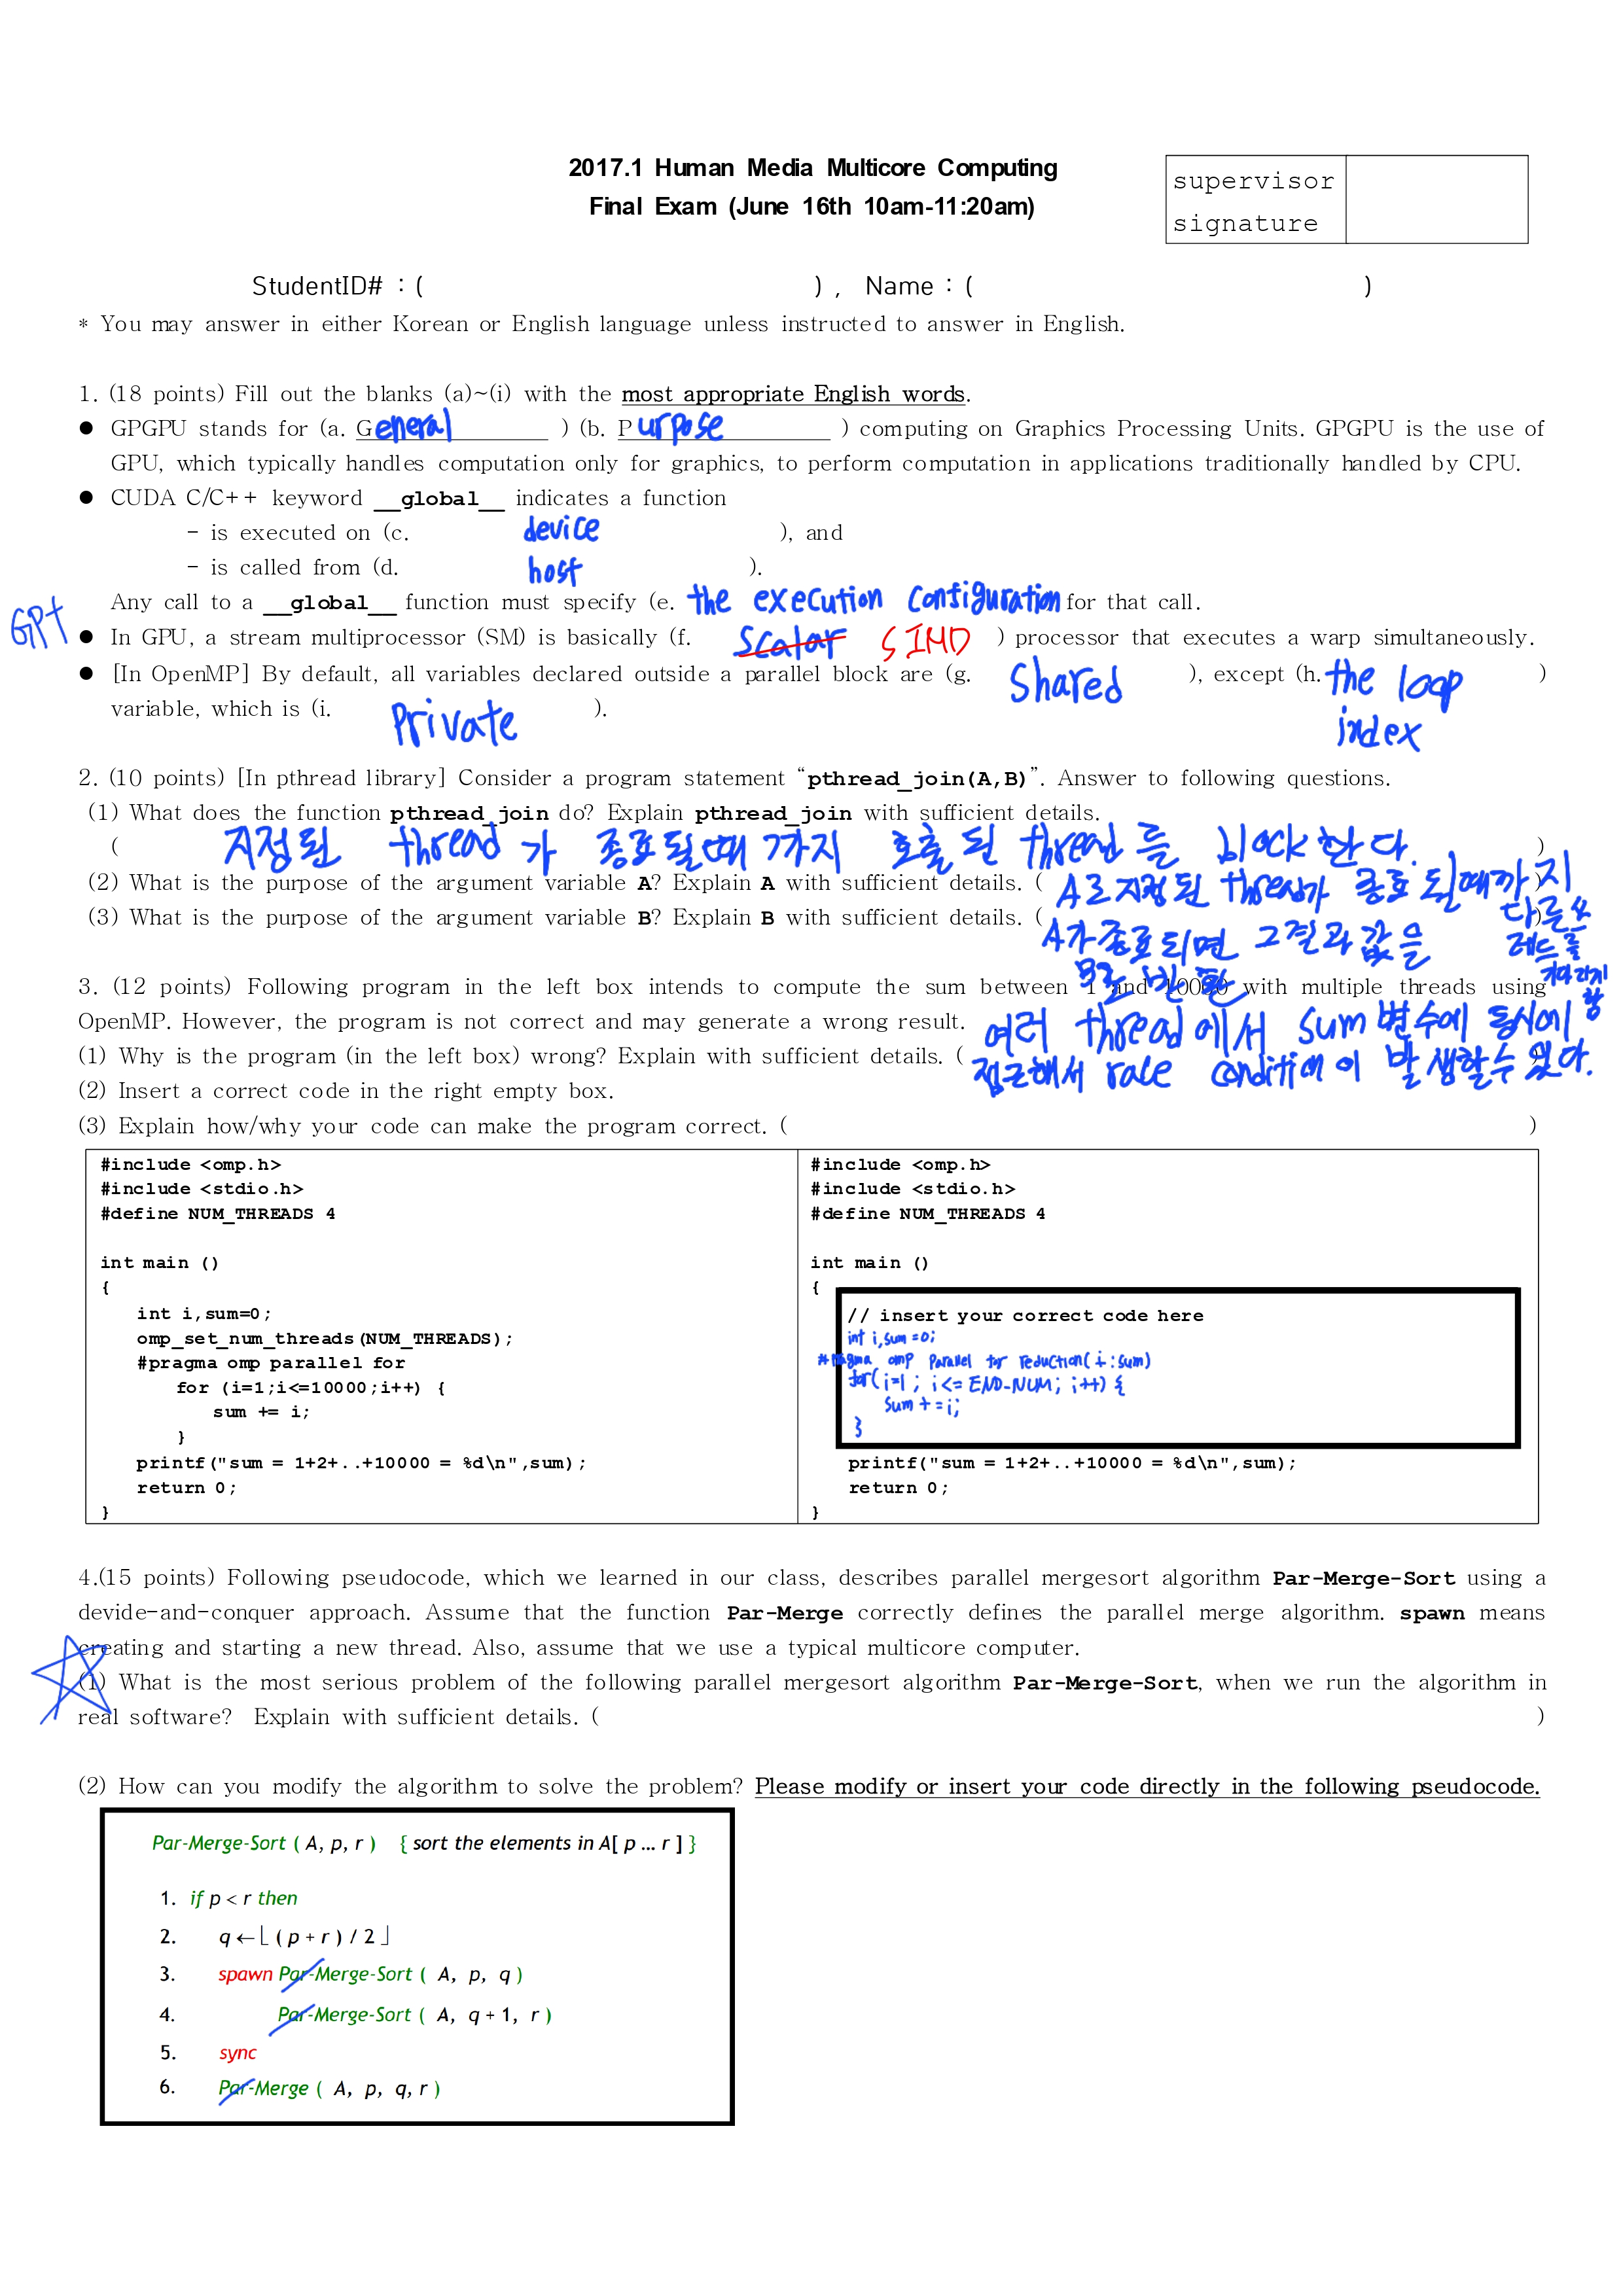 2017.1 Human Media Multicore Computing
Final Exam (June 16th 10am-11:20am)
supervisor
signature
StudentID# : ( ) , Name : ( )
* You may answer in either Korean or English language unless instructed to answer in English.
1. (18 points) Fill out the blanks (a)~(i) with the most appropriate English words.
● GPGPU stands for (a. General ) (b. Purpose ) computing on Graphics Processing Units. GPGPU is the use of
GPU, which typically handles computation only for graphics, to perform computation in applications traditionally handled by CPU.
● CUDA C/C++ keyword __global__ indicates a function
- is executed on (c. device ), and
- is called from (d. host ).
Any call to a __global__ function must specify (e. the execution configuration for that call.
GPT
● In GPU, a stream multiprocessor (SM) is basically (f. Scalar SIMD ) processor that executes a warp simultaneously.
● [In OpenMP] By default, all variables declared outside a parallel block are (g. Shared ), except (h. the loop index )
variable, which is (i. Private ).
2. (10 points) [In pthread library] Consider a program statement “pthread_join(A,B)”. Answer to following questions.
(1) What does the function pthread_join do? Explain pthread_join with sufficient details.
( 지정된 thread 가 종료될때 까지 호출 된 thread 를 block 한다. )
(2) What is the purpose of the argument variable A? Explain A with sufficient details. ( A로 지정된 thread가 종료 될때까지 다른 쓰레드를 기다리게 함 )
(3) What is the purpose of the argument variable B? Explain B with sufficient details. ( A가 종료되면 그 결과 값을 B로 반환 )
3. (12 points) Following program in the left box intends to compute the sum between 1 and 10000 with multiple threads using
OpenMP. However, the program is not correct and may generate a wrong result.
(1) Why is the program (in the left box) wrong? Explain with sufficient details. ( 여러 thread에서 sum 변수에 동시에
접근해서 race condition이 발생할수 있다. )
(2) Insert a correct code in the right empty box.
(3) Explain how/why your code can make the program correct. ( )
#include <omp.h>
#include <stdio.h>
#define NUM_THREADS 4
int main ()
{
int i,sum=0;
omp_set_num_threads(NUM_THREADS);
#pragma omp parallel for
for (i=1;i<=10000;i++) {
sum += i;
}
printf("sum = 1+2+..+10000 = %d\n",sum);
return 0;
}
#include <omp.h>
#include <stdio.h>
#define NUM_THREADS 4
int main ()
{
// insert your correct code here
int i,sum=0;
#pragma omp parallel for reduction(+:sum)
for(i=1; i<= END_NUM; i++) {
sum += i;
}
printf("sum = 1+2+..+10000 = %d\n",sum);
return 0;
}
4.(15 points) Following pseudocode, which we learned in our class, describes parallel mergesort algorithm Par-Merge-Sort using a
devide-and-conquer approach. Assume that the function Par-Merge correctly defines the parallel merge algorithm. spawn means
creating and starting a new thread. Also, assume that we use a typical multicore computer.
(1) What is the most serious problem of the following parallel mergesort algorithm Par-Merge-Sort, when we run the algorithm in
real software? Explain with sufficient details. ( )
(2) How can you modify the algorithm to solve the problem? Please modify or insert your code directly in the following pseudocode.
Par-Merge-Sort ( A, p, r ) { sort the elements in A[ p ... r ] }
1. if p < r then
2. q ← ⌊ ( p + r ) / 2 ⌋
3. spawn Par-Merge-Sort ( A, p, q )
4. Par-Merge-Sort ( A, q + 1, r )
5. sync
6. Par-Merge ( A, p, q, r )